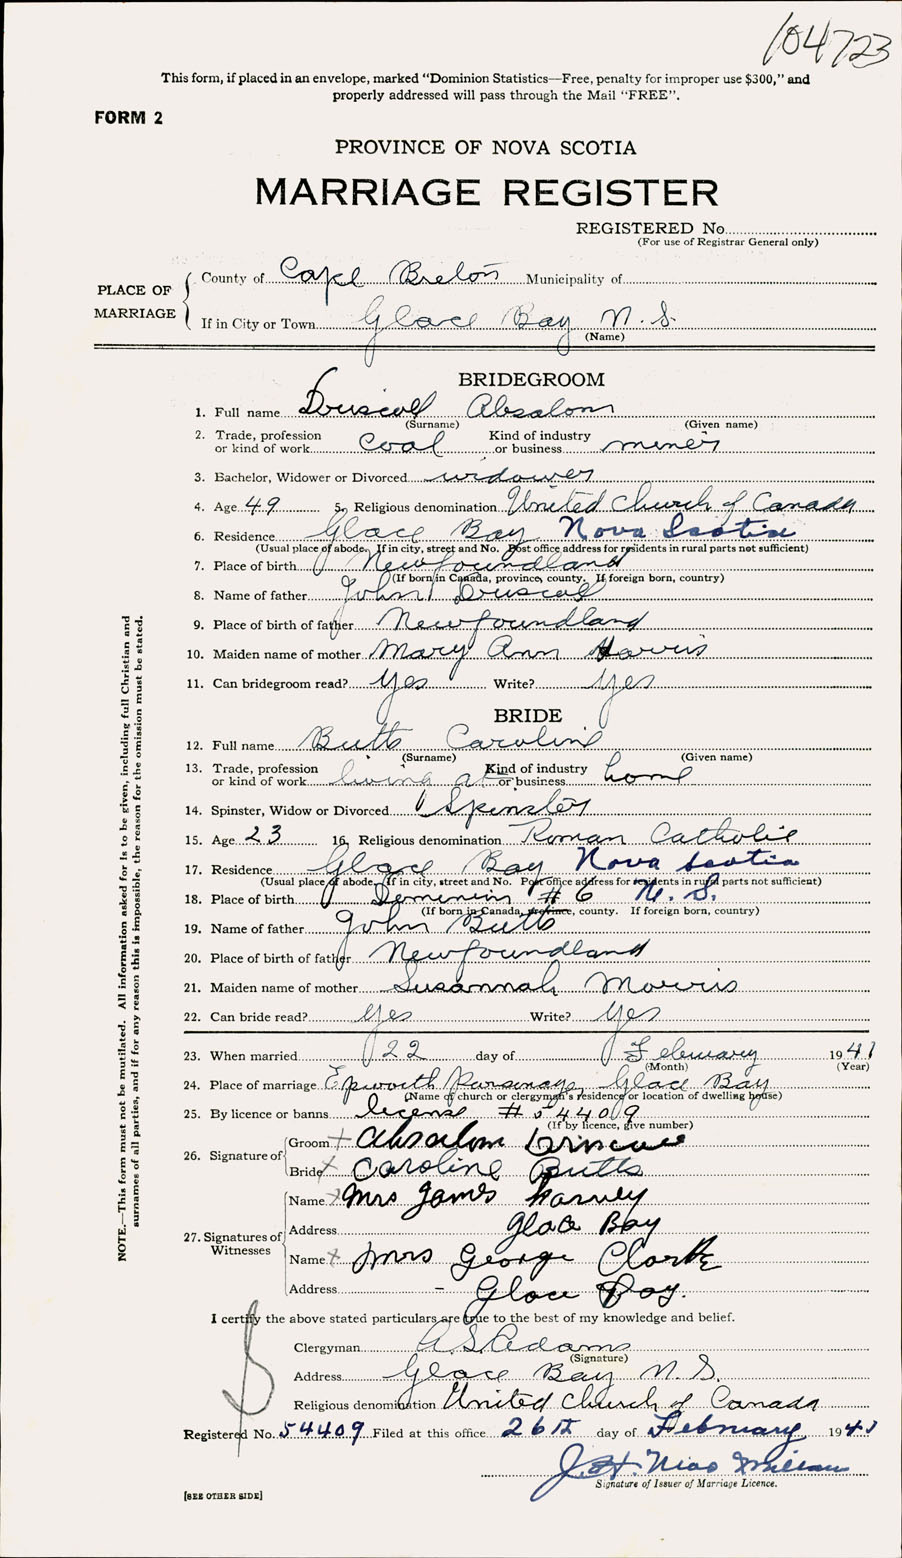 104723
This form, if placed in an envelope, marked "Dominion Statistics—Free, penalty for improper use $300," and
properly addressed will pass through the Mail "FREE".
FORM 2
PROVINCE OF NOVA SCOTIA
MARRIAGE REGISTER
REGISTERED No.
(For use of Registrar General only)
PLACE OF MARRIAGE
County of Cape Breton Municipality of
If in City or Town Glace Bay N. S.
(Name)
BRIDEGROOM
1. Full name Driscoll Absalom
(Surname) (Given name)
2. Trade, profession or kind of work Coal Kind of industry or business miner
3. Bachelor, Widower or Divorced widower
4. Age 49 5. Religious denomination United Church of Canada
6. Residence Glace Bay Nova Scotia
(Usual place of abode. If in city, street and No. Post office address for residents in rural parts not sufficient)
7. Place of birth Newfoundland
(If born in Canada, province, county. If foreign born, country)
8. Name of father John Driscoll
9. Place of birth of father Newfoundland
10. Maiden name of mother Mary Ann Harris
11. Can bridegroom read? Yes Write? Yes
BRIDE
12. Full name Butts Caroline
(Surname) (Given name)
13. Trade, profession or kind of work living at Kind of industry or business home
14. Spinster, Widow or Divorced Spinster
15. Age 23 16. Religious denomination Roman Catholic
17. Residence Glace Bay Nova Scotia
(Usual place of abode. If in city, street and No. Post office address for residents in rural parts not sufficient)
18. Place of birth Dominion # 6 N. S.
(If born in Canada, province, county. If foreign born, country)
19. Name of father John Butts
20. Place of birth of father Newfoundland
21. Maiden name of mother Susannah Morris
22. Can bride read? Yes Write? Yes
23. When married 22 day of February 1941
(Month) (Year)
24. Place of marriage Epworth Parsonage, Glace Bay
(Name of church or clergyman's residence or location of dwelling house)
25. By licence or banns license # 54409
(If by licence, give number)
26. Signature of
Groom Absalom Driscoll
Bride Caroline Butts
27. Signatures of Witnesses
Name Mrs James
Address Glace Bay
Name Mrs George Clarke
Address - Glace Bay.
I certify the above stated particulars are true to the best of my knowledge and belief.
Clergyman A. S. Adams
(Signature)
Address Glace Bay N. S.
Religious denomination United Church of Canada
Registered No. 54409 Filed at this office 26th day of February 1941
J. H.
Signature of Issuer of Marriage Licence.
[SEE OTHER SIDE]
NOTE.—This form must not be mutilated. All information asked for is to be given, including full Christian and
surnames of all parties, and if for any reason this is impossible, the reason for the omission must be stated.